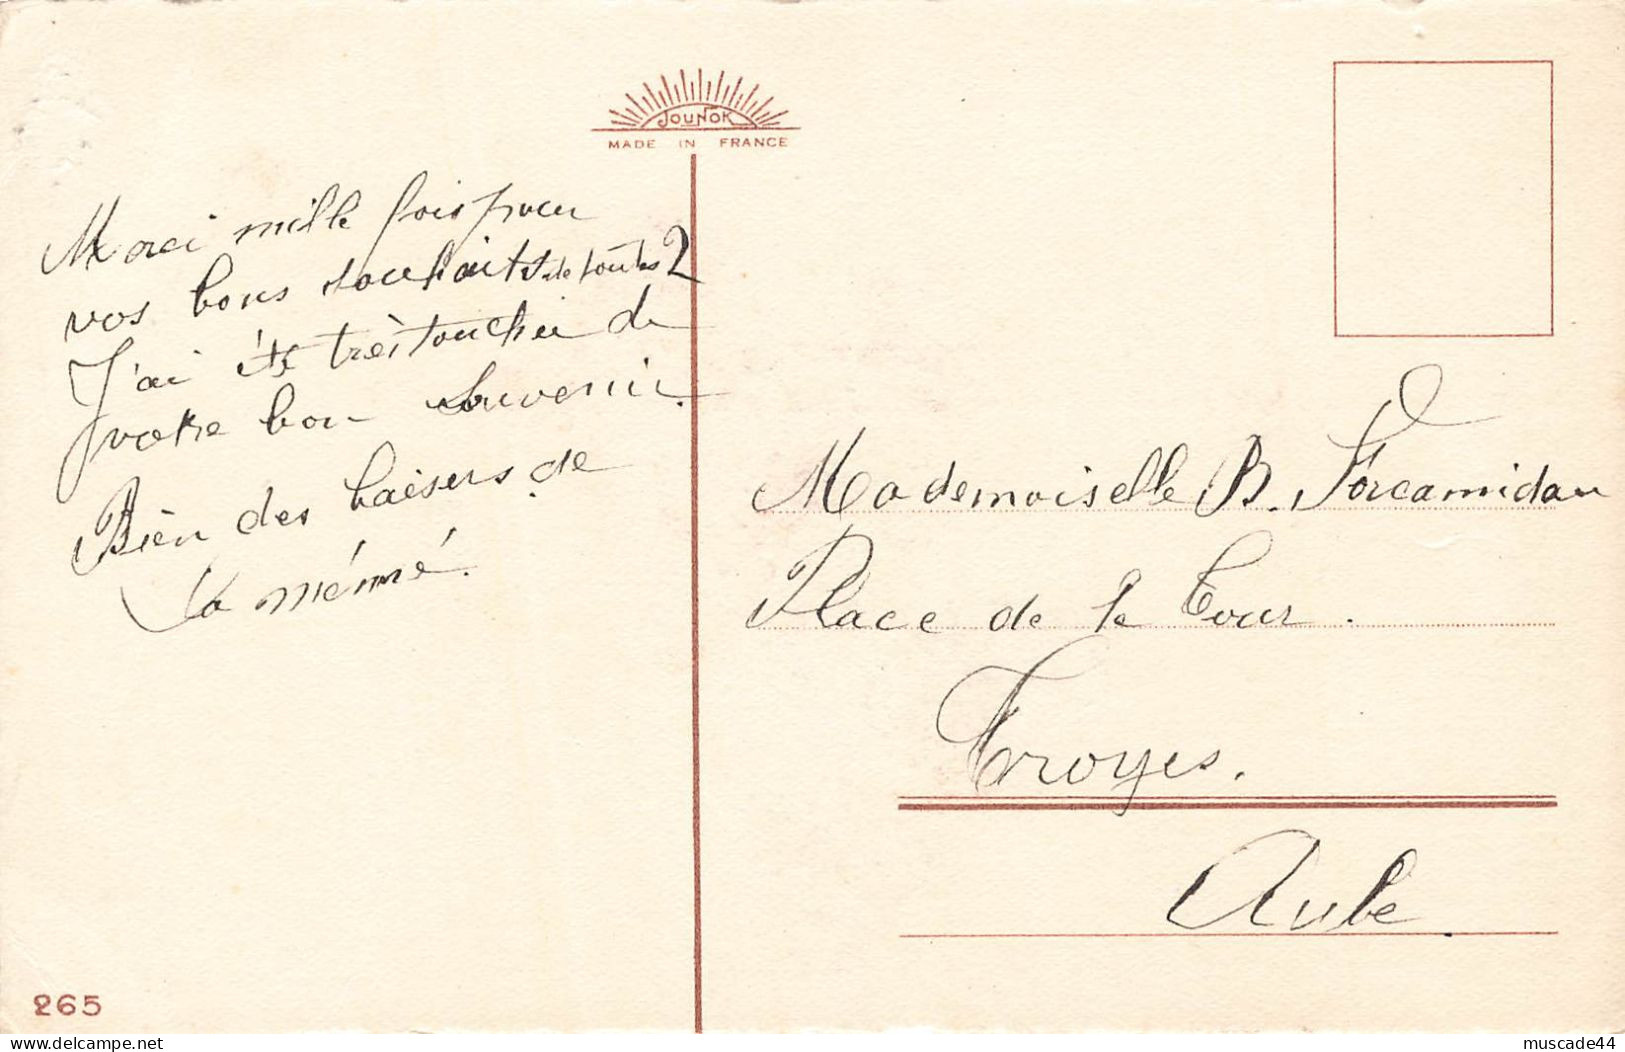 JOUNOK
MADE IN FRANCE
Merci mille fois pour
vos bons souhaits de toutes 2
J'ai été très toucher de
votre bon souvenir.
Bien des baisers de
la mémé.
Mademoiselle B. Forcamidan
Place de la Tour.
Troyes.
Aube.
265
delcampe.net
muscade44